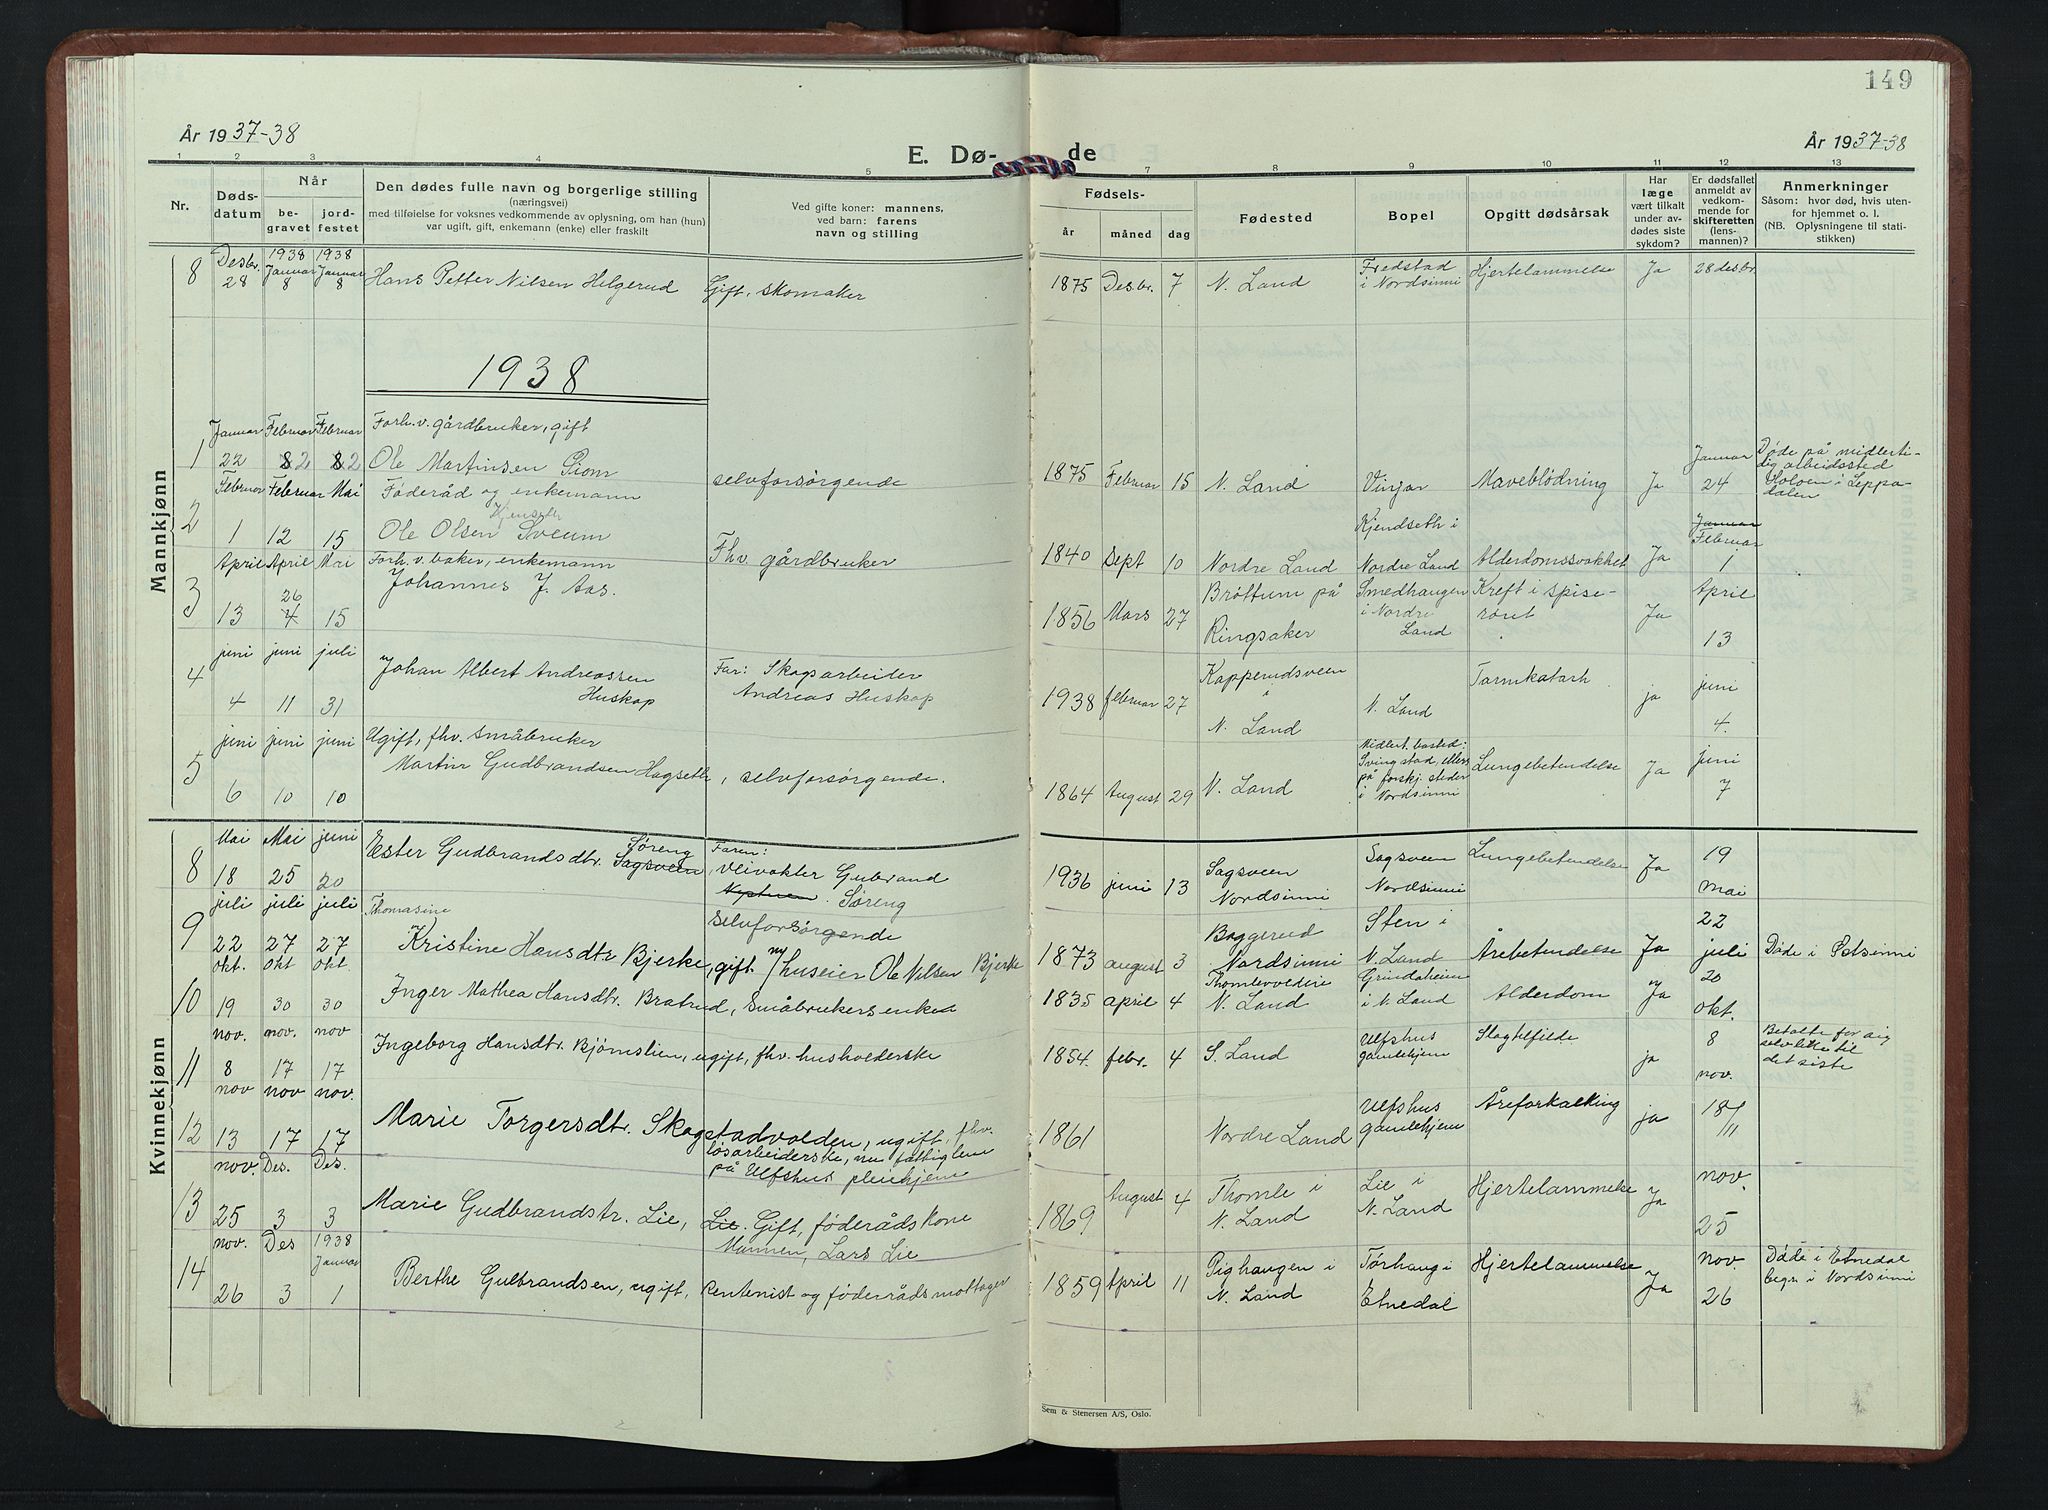 149
År 1937-38
E. Dø-
de
År 1937-38
1 2 3 4 5 7 8 9 10 11 12 13
Nr.
Døds-
datum
Når
be-
gravet
jord-
festet
Den dødes fulle navn og borgerlige stilling
(næringsvei)
med tilføielse for voksnes vedkommende av oplysning, om han (hun)
var ugift, gift, enkemann (enke) eller fraskilt
Ved gifte koner: mannens,
ved barn: farens
navn og stilling
Fødsels-
år
måned
dag
Fødested
Bopel
Opgitt dødsårsak
Har
læge
vært tilkalt
under av-
dødes siste
sykdom?
Er dødsfallet
anmeldt av
vedkom-
mende for
skifteretten
(lens-
mannen)?
Anmerkninger
Såsom: hvor død, hvis uten-
for hjemmet o. l.
(NB. Oplysningene til stati-
stikken)
Mannkjønn
8 Desbr. 28 1938 Januar 8 1938 Januar 8 Hans Petter Nilsen Helgerud Gift, skomaker 1875 Desbr. 7 N. Land Fredstad i Nordsinni Hjertelammelse Ja 28 desbr.
1938
1 Januar 22 Februar 2 Februar 2 Forh.v. gårdbruker, gift
Ole Martinsen selvforsørgende 1875 Februar 15 N. Land Vinjar Maveblödning Ja Januar 24 Døde på midlerti-
dig arbeidssted
2 Februar 1 Februar 12 Mai 15 Föderåd og enkemann
Kjenseth
Ole Olsen Sveum Fhv. gårdbruker 1840 Sept 10 Nordre Land Kjendseth i Nordre Land Alderdomssvakhet Ja Januar Februar 1
3 April 13 April 26 Mai 15 Forh. v. baker, enkemann
Johannes J. Aas. 1856 Mars 27 Bröttum på Ringsaker Smedhaugen i Nordre Land Kreft i spise-
röret Ja April 13
4 juni 4 juni 11 juli 31 Johan Albert Andreassen
Huskop Far: Skogsarbeider
Andreas Huskop 1938 februar 27 Kapperudsveen i N. Land N. Land Tarmkatarh ja juni 4.
5 juni 6 juni 10 juni 10 Ugift, fhv. småbruker
Martin Gudbrandsen Hagseth, selvforsørgende. 1864 August 29 N. Land Midlert. bosted: Svingstad, ellers på forskj. steder i Nordsinni Lungebetendelse Ja juni 7
Kvinnekjønn
8 Mai 18 Mai 25 juni 20 Ester Gudbrandsdtr. Sagsveen Søreng, Faren:
veivokter Gubrand
Søreng 1936 juni 13 Sagsveen Nordsinni Sagsveen Nordsinni Lungebetendelse Ja 19 mai
9 juli 22 juli 27 juli 27 Thomasine
Kristine Hansdtr Bjerke, gift. selvforsørgende
m/ huseier Ole Nilsen Bjerke 1873 august 3 Baggerud Nordsinni Sten i N. Land Årebetendelse Ja 22 juli Døde i Østsinni
10 okt. 19 okt 30 okt. 30 Inger Mathea Hansdtr. Bratrud, småbrukersenke 1835 april 4 N. Land Grindaheim i N. Land Alderdom Ja 20 okt.
11 nov. 8 nov. 17 nov. 17 Ingeborg Hansdtr. Bjørnslien, ugift, fhv. husholderske 1854. febr. 4 S. Land Ulfshus gamlehjem Slagtilfelde ja 8 nov. Betalte for sig
selv like til
det siste
12 nov 13 nov 17 nov. 17 Marie Torgersdtr. Skogstadvolden, ugift, fhv.
løsarbeiderske, nu fattiglem
på Ulfshus pleiehjem 1861 Nordre Land Ulfshus Gamlehjem Åreforkalking ja 18/11
13 nov. 25 Des. 3 Des. 3 Marie Gudbrandstr. Lie, Lie. Gift, föderådskone
Mannen, Lars Lie 1869 August 4 Thomle i N. Land Lie i N. Land Hjertelammelse Ja nov. 25
14 nov. 26 Des 3 1938 Januar 1 Berthe Gulbrandsen, ugift, rentenist og föderådsmottager 1859 April 11 Pighaugen i N. Land Tørhaug i Etnedal Hjertelammelse Ja nov. 26 Döde i Etnedal
begr. i Nordsinni
Sem & Stenersen A/S, Oslo.